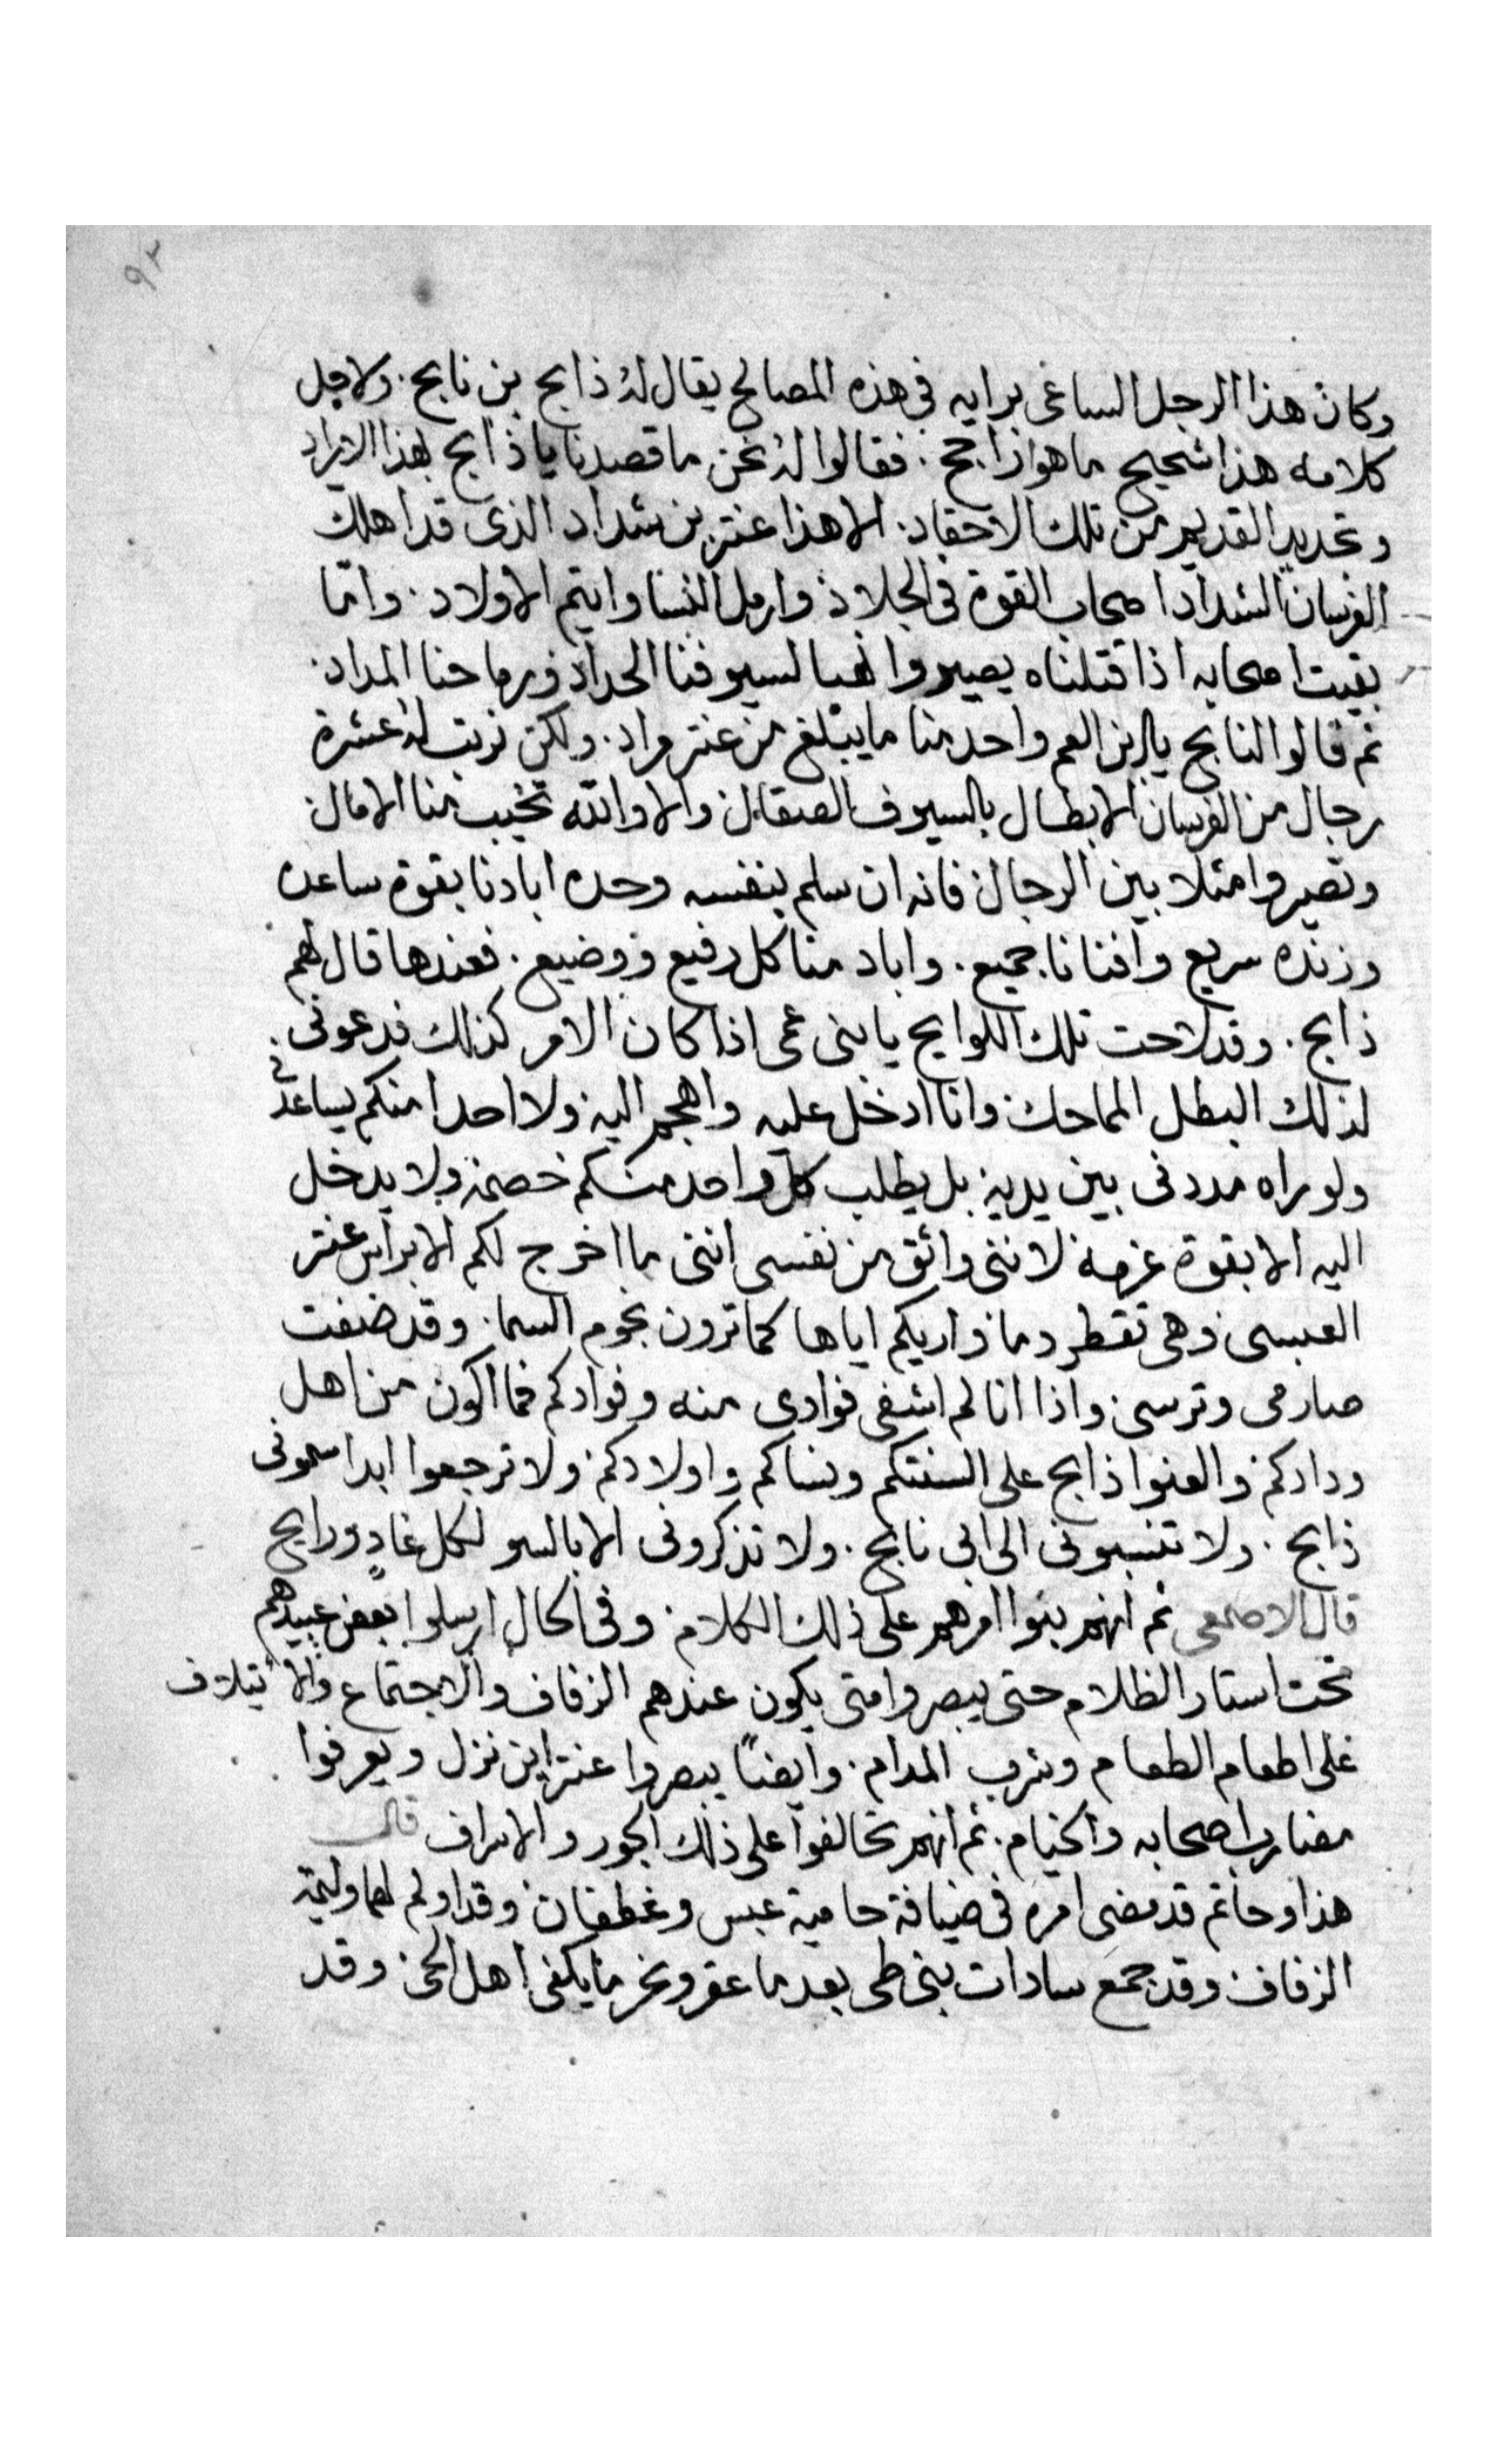 ٩٣
وكان هذا الرجل الساعى برايه فى هذه المصالح يقال له ذابح بن نابح. ولاجل
كلامه هذا شحيح ما هو راجح. فقالوا له نحن ما قصدنا يا ذابح بهذا الايراد
وتجديد القديم من تلك الاحقاد. الا هذا عنتر بن شداد الذى قد اهلك
الفرسان الشداد اصحاب القوة فى الجلاد وارمل النسا وايتم الاولاد. وامّا
بقيت اصحابه اذا قتلناه يصيروا نهبا لسيوفنا الحداد ورماحنا المداد.
ثم قالوا لنابح يا ابن العم واحد منا ما يبلغ من عنتر مراد. ولكن نرتب له عشرة
رجال من الفرسان الابطال بالسيوف الصقال والا والله تخيب منا الامال
ونصيروا مثلا بين الرجال فانه ان سلم بنفسه وحده ابادنا بقوة ساعده
وزنده سريع وافنانا جميع. واباد منا كل رفيع ووضيع. فعندها قال لهم
ذابح. وقد لاحت تلك اللوايح يا بنى عمى اذا كان الامر كذلك فدعونى
لذلك البطل المماحك وانا ادخل عليه واهجم اليه ولا احدا منكم يساعدنى
ولو راه مددنى بين يديه بل يطلب كل واحد منكم خصمه ولا يدخل
اليه الا بقوة عزمه لاننى واثق من نفسى اننى ما اخرج لكم الا براس عنتر
العبسى وهى تقطر دما واريكم اياها كما ترون نجوم السما. وقد ضفت
صارمى وترسى واذا انا لم اشفى فوادى منه وفوادكم فما اكون من اهل
ودادكم والعنوا ذابح على السنتكم ونساكم واولادكم ولا ترجعوا ابدا سمونى
ذابح. ولا تنسبونى الى ابى نابح. ولا تذكرونى الا بالسو لكل غادٍ ورايح
قال الاصمعى ثم انهم بنوا امرهم على ذلك الكلام وفى الحال ارسلوا بعض عبيدهم
تحت استار الظلام حتى يبصروا متى يكون عندهم الزفاف والاجتماع والايتلاف
على اطعام الطعام وشرب المدام. وايضًا يبصروا عنتر اين نزل ويعرفوا
مضارب اصحابه والخيام. ثم انهم تحالفوا على ذلك الجور والاسراف قال
هذا وحاتم قد مضى امره فى ضيافة حامية عبس وغطفان وقد اولم لهما وليمة
الزفاف وقد جمع سادات بنى طى بعد ما عقر ونحر ما يكفى اهل الحى وقد